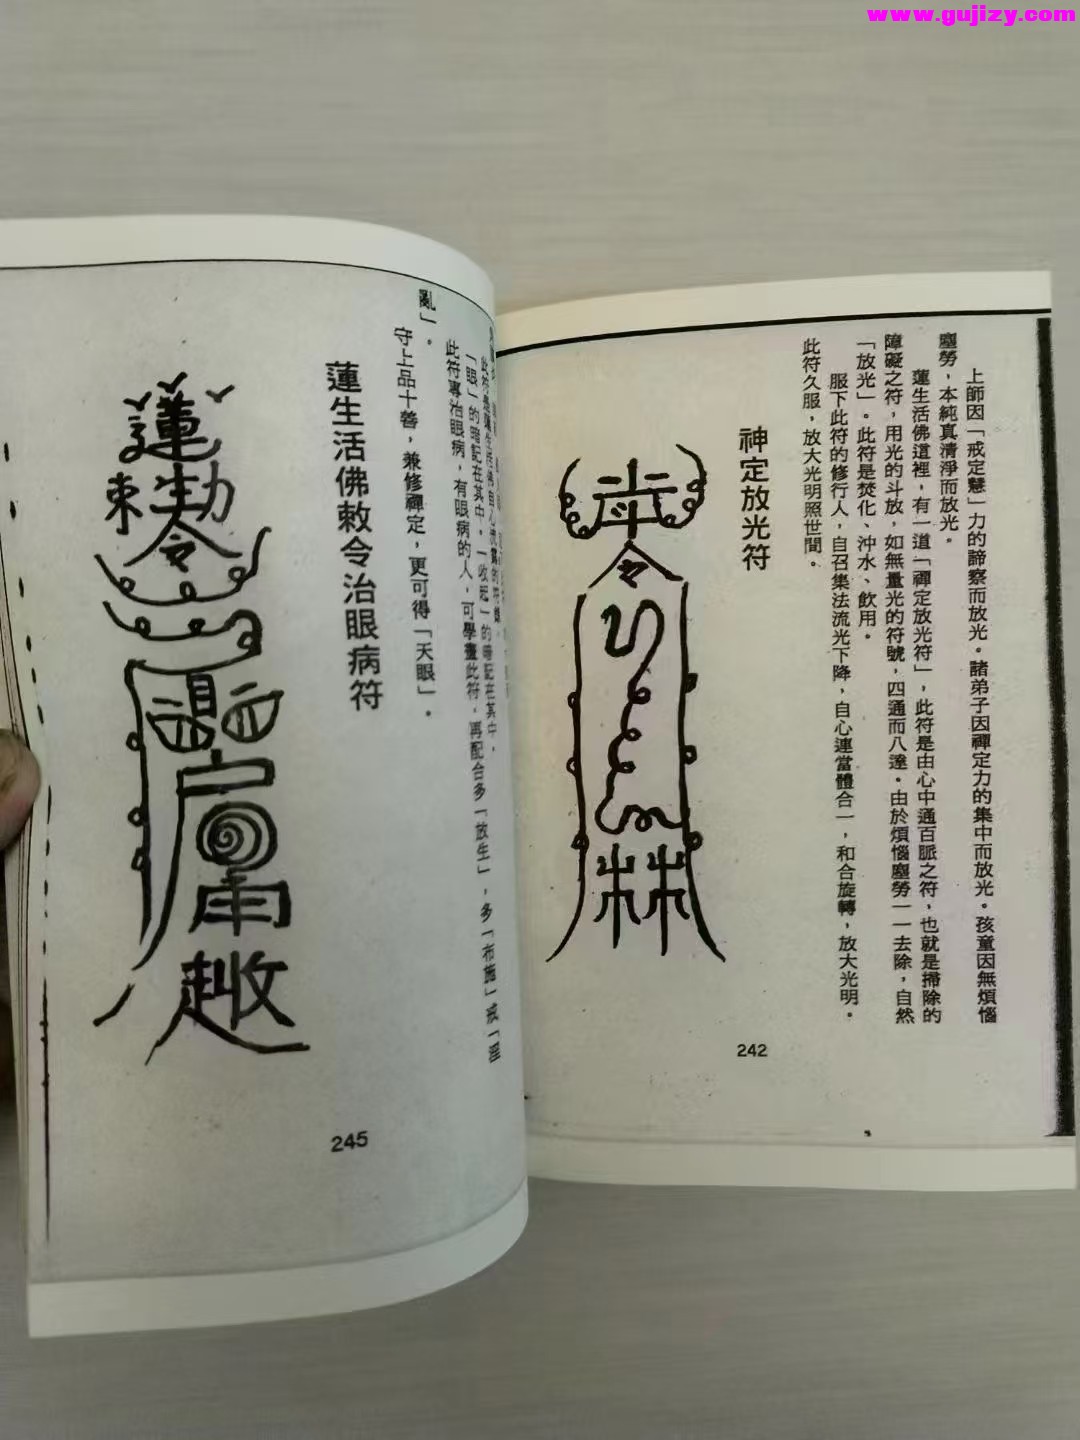 www.gujizy.com
上師因「戒定慧」力的諦察而放光。諸弟子因禪定力的集中而放光。孩童因無煩惱
塵勞，本純真清淨而放光。
蓮生活佛道裡，有一道「禪定放光符」，此符是由心中通百脈之符，也就是掃除的
障礙之符，用光的斗放，如無量光的符號，四通而八達。由於煩惱塵勞一一去除，自然
「放光」。此符是焚化、沖水、飲用。
服下此符的修行人，自召集法流光下降，自心連當體合一，和合旋轉，放大光明。
此符久服，放大光明照世間。
神定放光符
令
林
242
此符是蓮生活佛自心流露的符籙。
「眼」的暗記在其中，一收起」的暗記在其中。
此符專治眼病，有眼病的人，可學畫此符，再配合多「放生」，多「布施」戒「淫
亂」。
守上品十善，兼修禪定，更可得「天眼」。
蓮生活佛敕令治眼病符
蓮
生
令
245